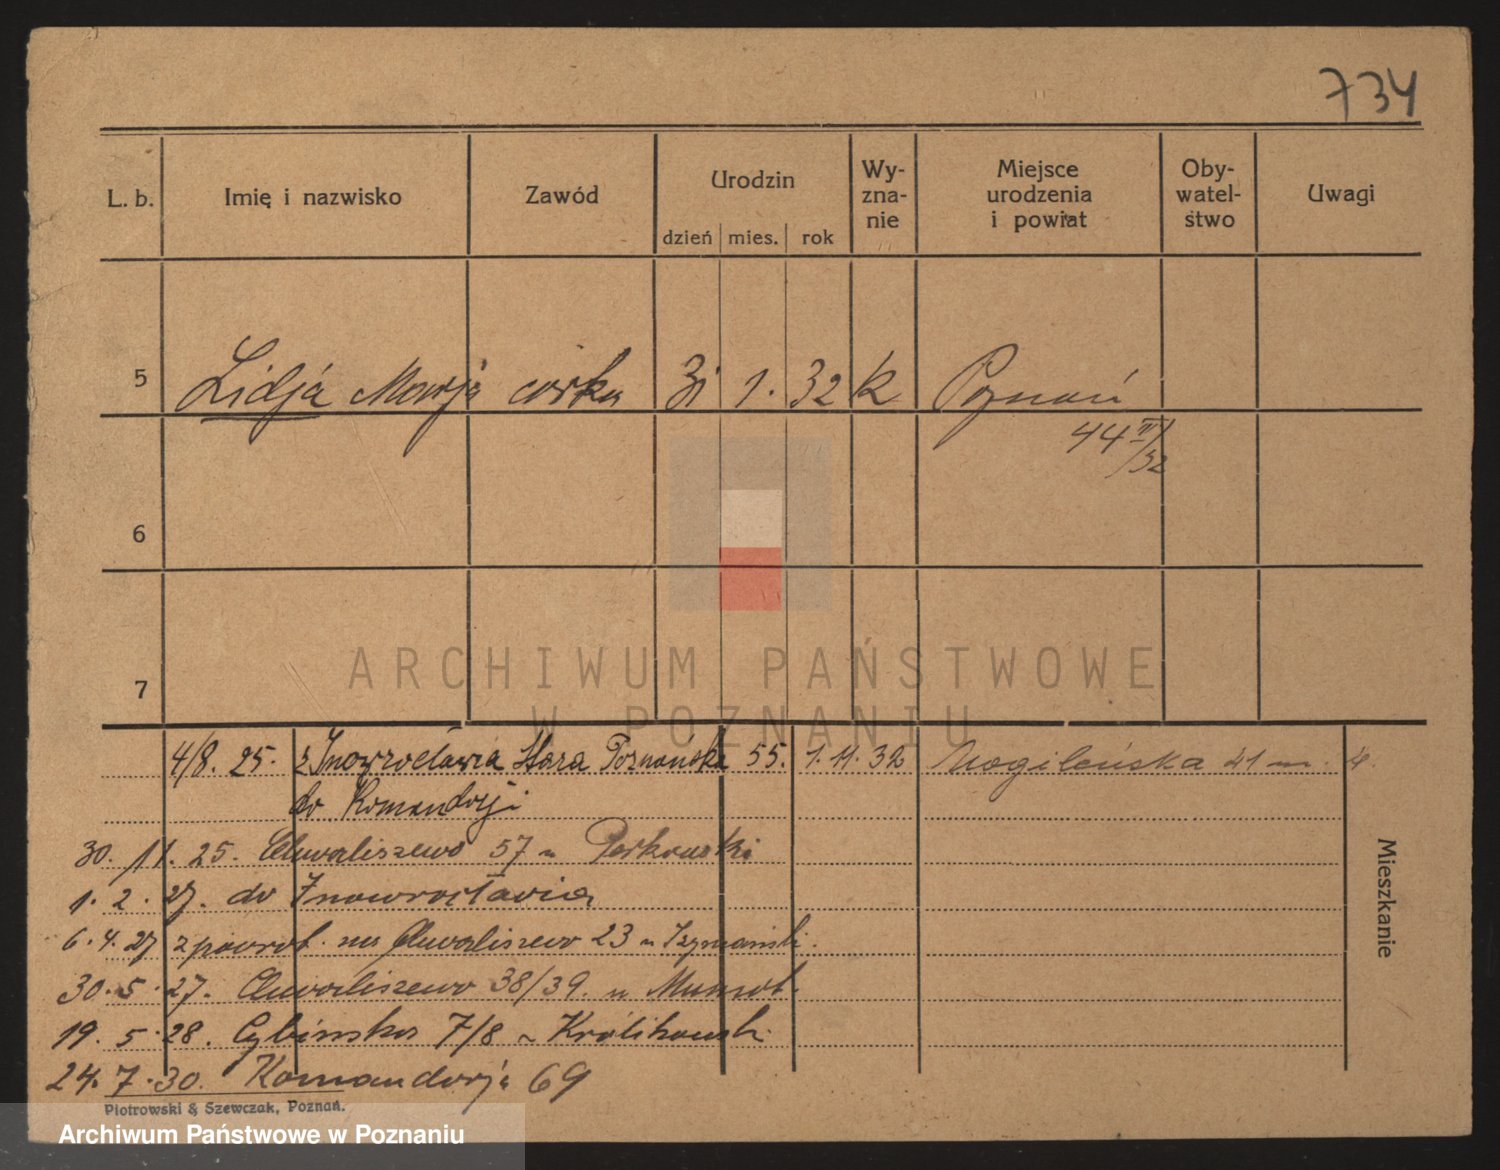 734
L. b. Imię i nazwisko Zawód Urodzin Wy- Miejsce Oby- Uwagi
zna- urodzenia watel-
nie i powiat stwo
dzień mies. rok
5 Lidja Marja córka 31 1. 32 k Poznań
44 III/32
6
7
ARCHIWUM PAŃSTWOWE
W POZNANIU
4/8. 25. z Inowrocławia Stara Poznańska 55. 1. 11. 32 Mogileńska 41 m. 4.
do Komandorji
30. 11. 25. Chwaliszewo 57 u
1. 2. 27. do Inowrocławia
6. 4. 27 z powrot. na Chwaliszewo 23 u Szymański.
30. 5. 27. Chwaliszewo 38/39. u
19. 5. 28. Cybińska 7/8 u Królikowsk.
24. 7. 30. Komandorja 69
Mieszkanie
Piotrowski & Szewczak, Poznań.
Archiwum Państwowe w Poznaniu